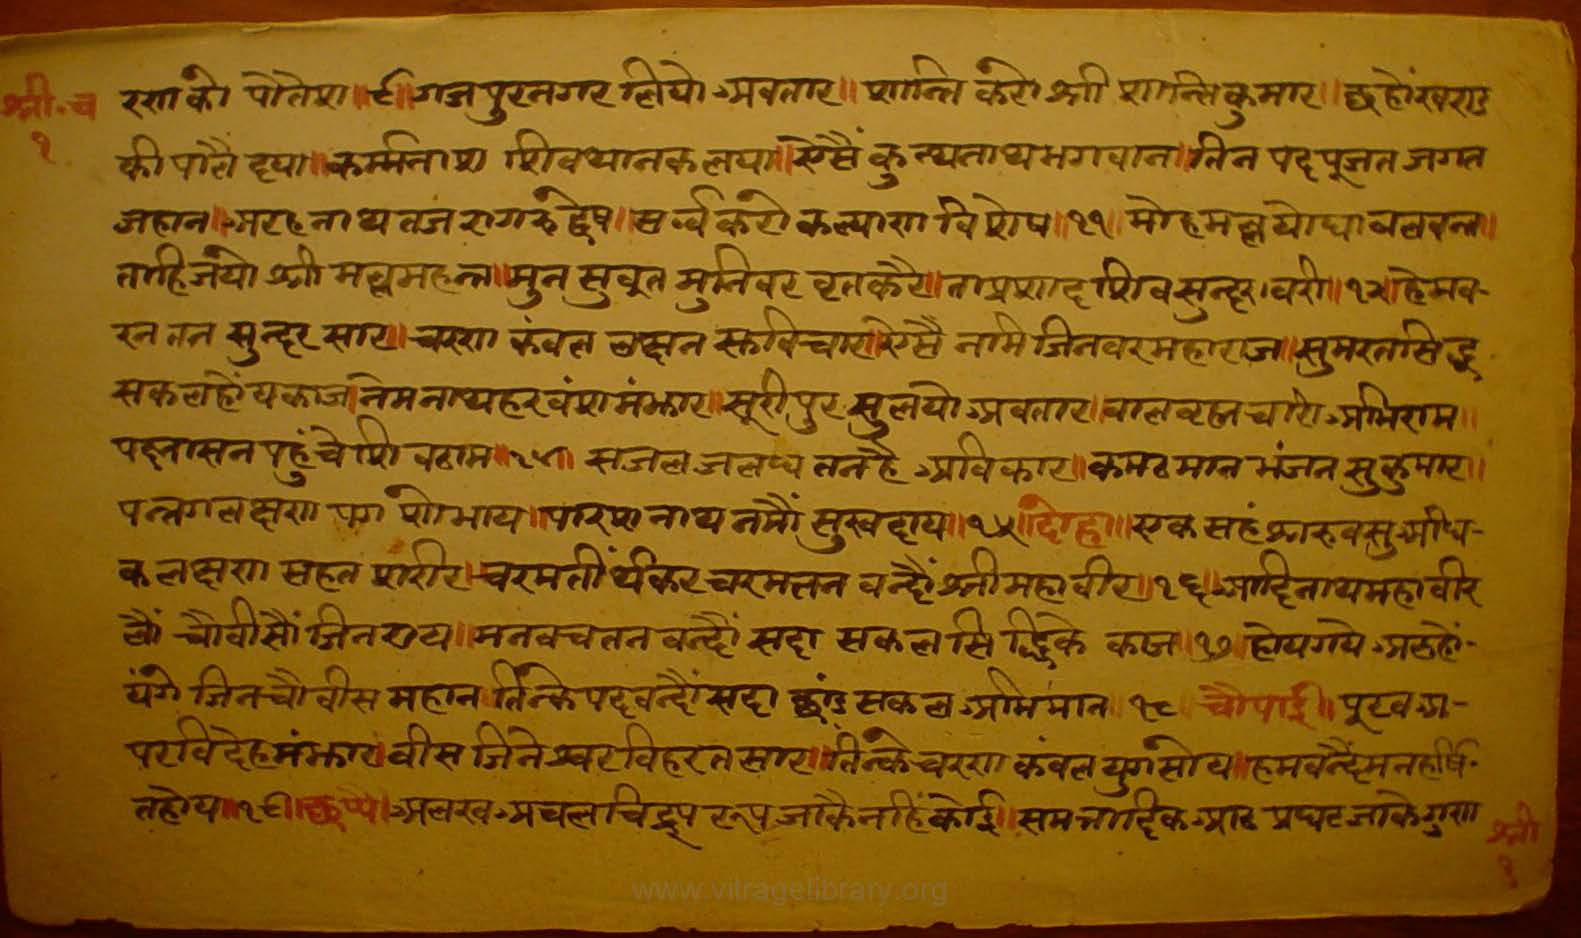 श्री॰च
१
रणको पोतेश॥९॥गजपुरनगर लियो अवतार॥ शान्ति करो श्री शान्तिकुमार॥ छहोंखण्ड
की पालै दया॥कर्म्मनाश शिवथानकलया॥ऐसैं कुन्थनाथ भगवान॥तिन पद पूजत जगत
जहान॥अरहनाथ तज रागरुद्वेष॥सर्व्व करो कल्याण विशेष॥११॥ मोहमल्ल योधा बलवन्त॥
ताहि जयो श्री मल्लमहन्त॥मुन सुवृत मुनिवर वृत करै॥ता प्रशाद शिवसुन्दर वरी॥१२॥हेमव-
रन तन सुन्दर सार॥चरण कंवल लक्षन विचार॥ऐसैं नमि जिनवर महाराज॥सुमरत सिद्ध
सकल होंय काज॥नेमनाथ हरवंश मंझार॥सूरीपुर सुलयो अवतार॥बालवृह्मचारी अभिराम॥
पद्मासन पहुंचे शिवठाम॥१४॥ सजल जलध तन है अविकार॥कमठ मान भंजन सुकुमार॥
पन्नग लक्षण पग शोभाय॥पारशनाथ नमौं सुखदाय॥१५॥दोहा॥ एक सहंश्र रु वसु अधि-
क लक्षण सहत शरीर॥चरमतीर्थंकर चरमतन वन्दौं श्री महावीर॥१६॥आदिनाथ महावीर
लौं चौवीसौं जिनराय॥मनवचतन वन्दौं सदा सकल सिद्धिके काज॥१७॥होय गये अरु हों-
यंगे जिन चौवीस महान॥तिन्के पद वन्दौं सदा छांड सकल अभिमान॥१८॥ चौपाई॥ पूरव अ-
पर विदेह मंझार॥वीस जिनेश्वर विहरत सार॥तिन्के चरण कंवल युग सोय॥हम वन्दैं मन हर्षि-
त होय॥१९॥छप्पै॥अलख अचल चिद्रूप रूप जाकै नहिं कोई॥समत्तादिक आठ प्रघट जाके गुण
श्री
१
www.vitragelibrary.org